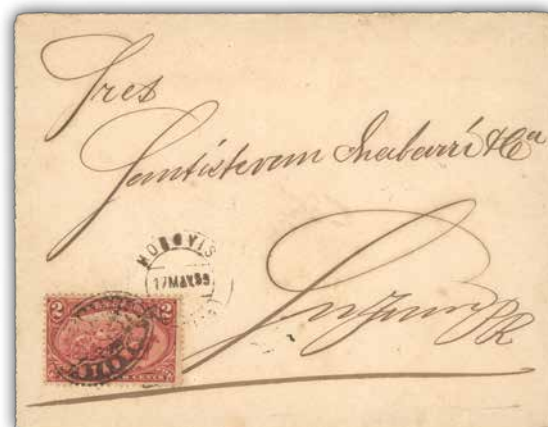 Sres
Santistevan Chabarri & Ca
MOROVIS
17 MAY 99
2 2
San Juan PR